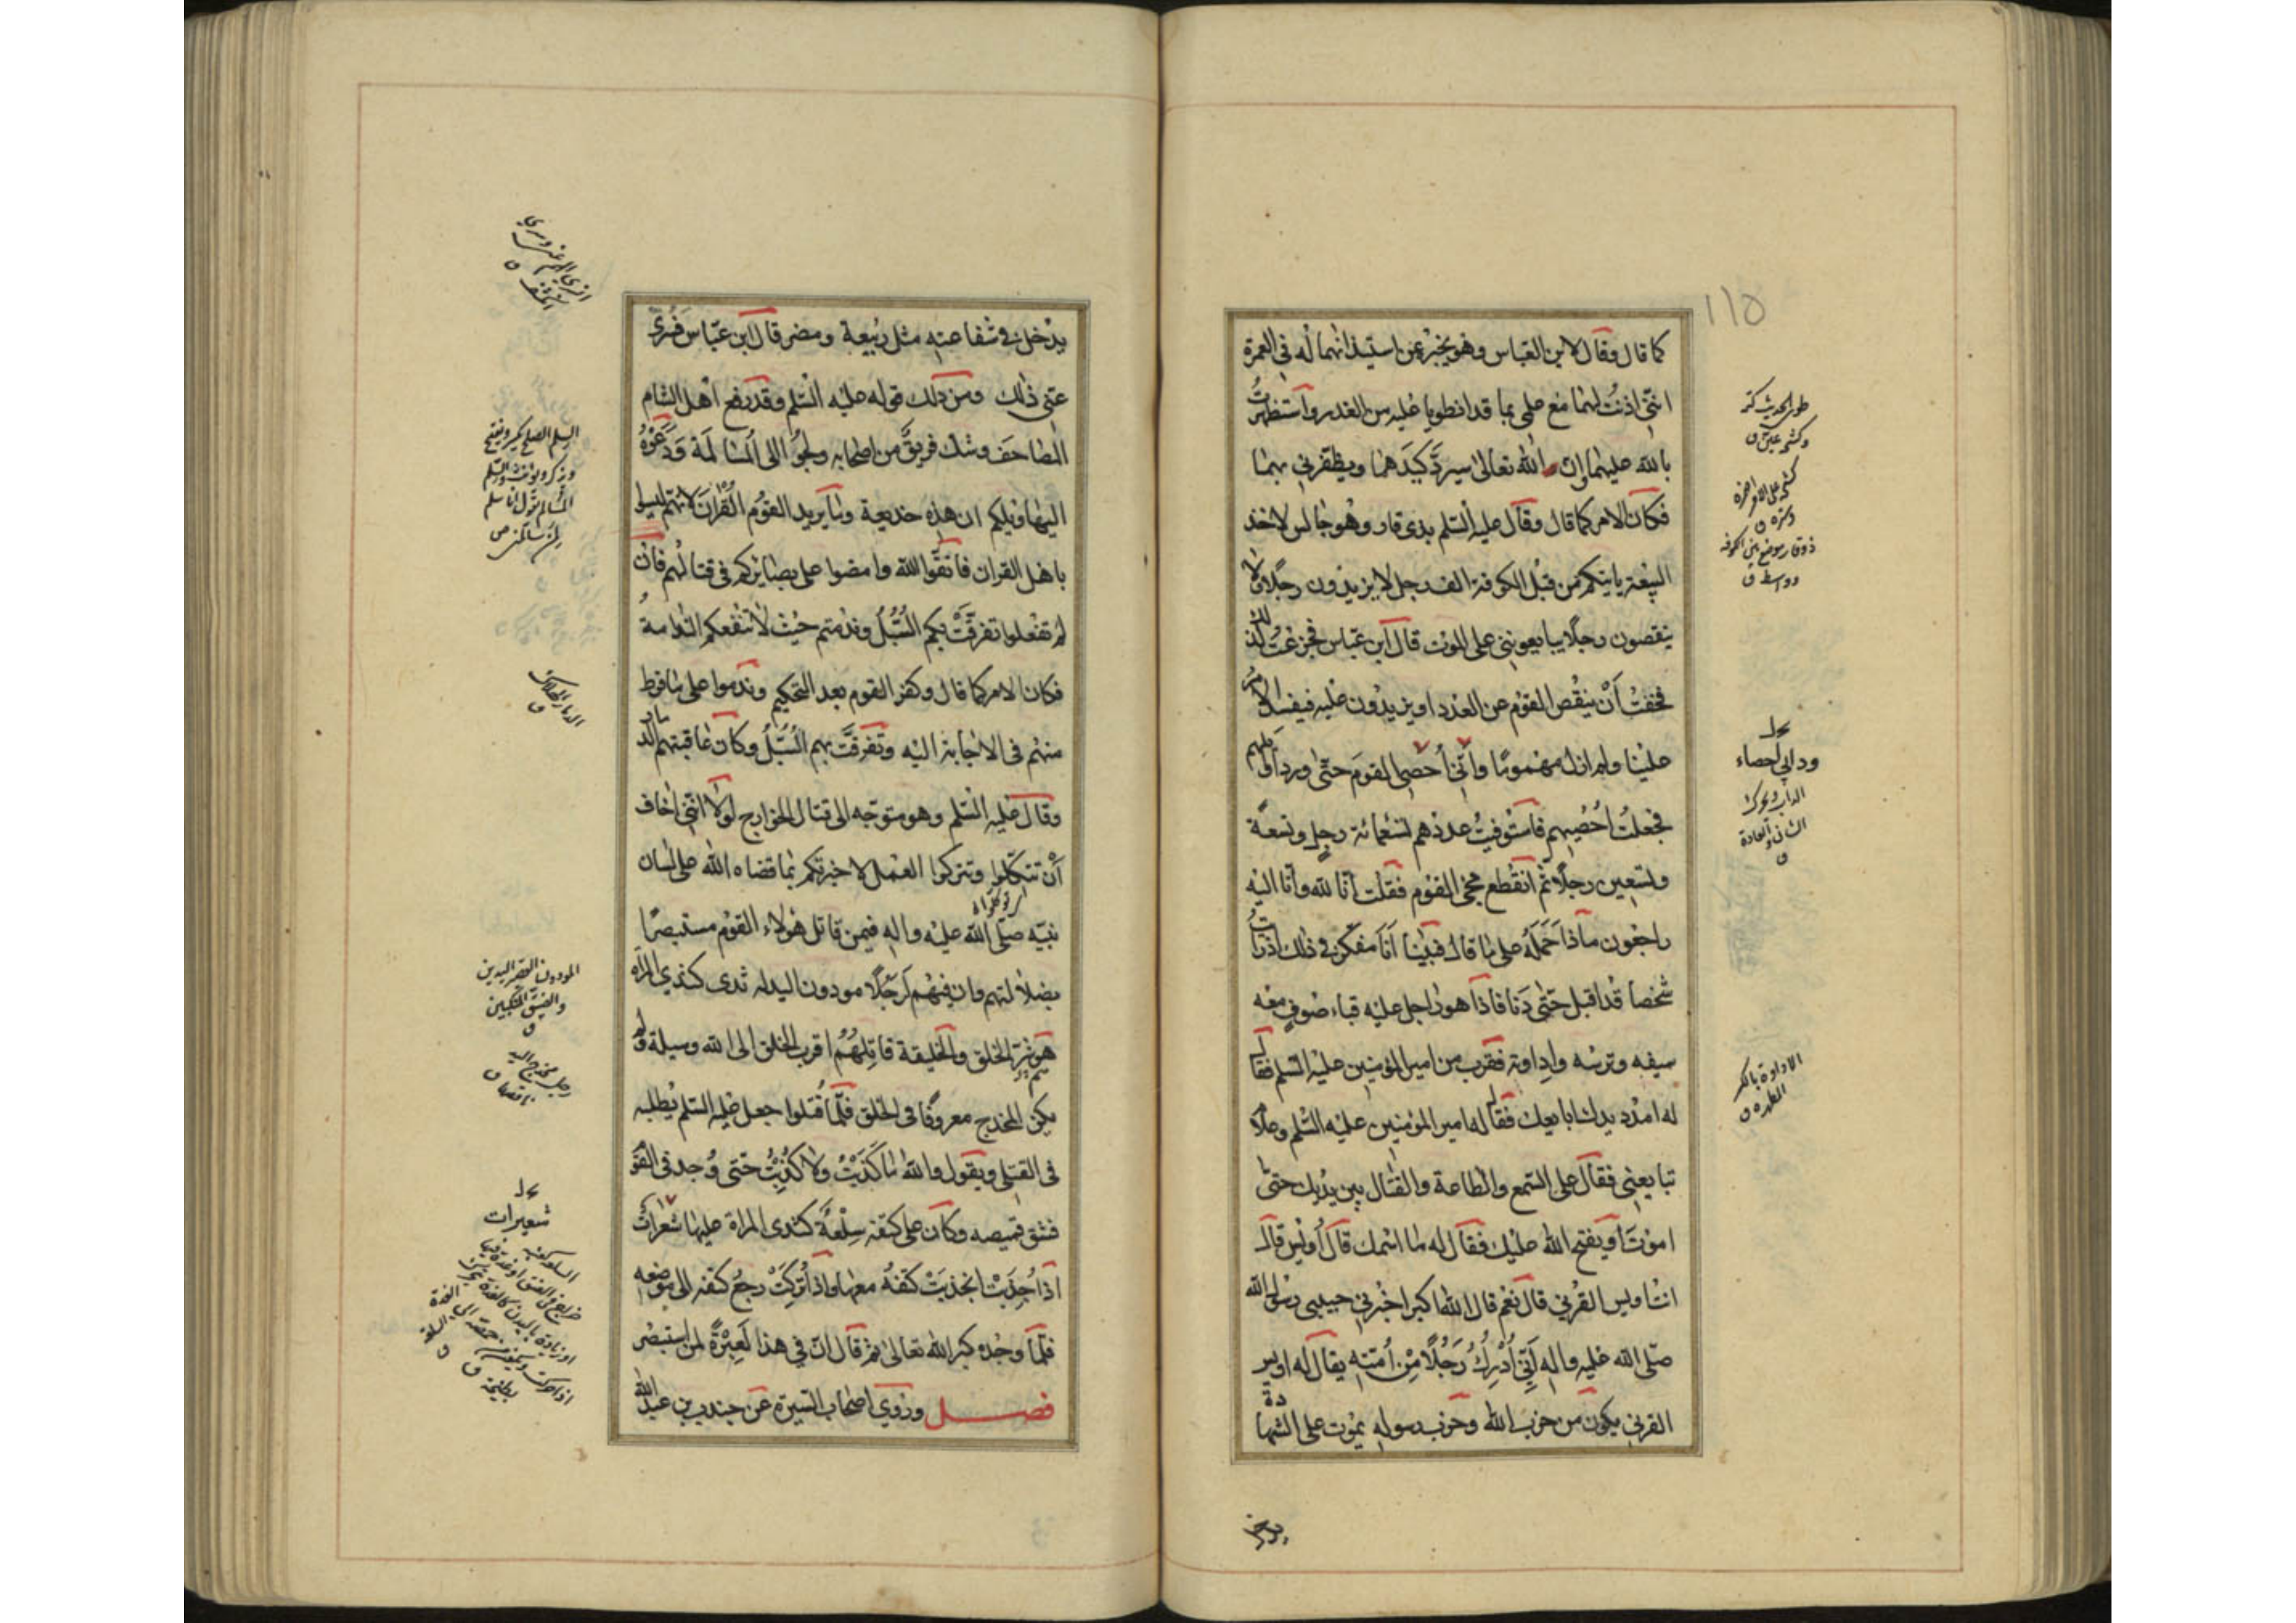 ١١٥
كما قال وقال لابن العباس وهو يخبره عن استيذانهما له في العمرة
انّني اذنت لهما مع علمي بما قد انطويا عليه من الغدر واستظهرتُ
بالله عليهما وانّ الله تعالى سيردّ كيدهما ويظفرني بهما
فكان الامر كما قال وقال عليه السّلم بذي قار وهو جالس لاخذ
البيعة ياتيكم من قبل الكوفة الف رجل لا يزيدون رجلا ولا
ينقصون رجلا يبايعونني على الموت قال ابن عباس فجزعتُ لذلك
فخفتُ أنْ ينقص القوم عن العدد او يزيدون عليه فيفسد الامر
علينا ولم ازل مهمومًا وانّي أحصي القوم حتّى ورد اوايلهم
فجعلتُ أحصيهم فاستوفيتُ عددهم تسعمائة رجل وتسعة
وتسعين رجلا ثم انقطع مجيء القوم فقلت انّا لله وانّا اليه
راجعون ماذا حَمَلَهُ على ما قال فبينا أنا مفكّر في ذلك اذ رايتُ
شخصا قد اقبل حتّى دنا فاذا هو راجل عليه قباء صوف معه
سيفه وترسه واداوته فقرب من امير المؤمنين عليه السّلم فقال
له امدد يدك ابايعك فقال له امير المؤمنين عليه السّلم وعلام
تبايعني فقال على السّمع والطاعة والقتال بين يديك حتى
اموتَ أو يفتح الله عليك فقال له ما اسمك قال أويس قال
انت اويس القرني قال نعم قال الله اكبر اخبرني حبيبي رسول الله
صلّى الله عليه واله أنّي أُدْرِكُ رَجُلًا مِنْ أمّته يقال له اويس
القرني يكون من حزب الله وحزب رسوله يموت على الشهادة
ودأبي احصاء
الاداوة بالكسر
المطهرة ق
يدخل في شفاعته مثل ربيعة ومضر قال ابن عبّاس فسُرّي
عنّي ذلك ومن ذلك قوله عليه السّلم وقد رفع أهل الشام
المصاحف وشك فريقٌ من اصحابه ولجؤا الى المسالمة ودعوهُ
اليها ويلكم ان هذه خديعة وما يريد القوم القرانَ لانهم ليسوا
باهل القران فاتقوا الله وامضوا على بصايركم في قتالهم فان
لم تفعلوا تفرّقتْ بكم السُّبُلُ وندمتم حيث لا تنفعكم الندامة
فكان الامر كما قال وكفر القوم بعد التحكيم وندموا على ما فرط
منهم في الاجابة اليه وتفرقتَّ بهم السُّبُلُ وكان عاقبتهم الدمار
وقال عليه السّلم وهو متوجّه الى قتال الخوارج لولا انّني اخاف
أنْ تتكلوا وتتركوا العمل لاخبرتكم بما قضاه الله على لسان
نبيّه صلّى الله عليه واله فيمن قاتل هؤلاء القوم مستبصرًا
بضلالتهم وان فيهم لَرجُلًا مودون اليد له ثدى كثدي المراة
هم شرّ الخلق والخليقة قاتِلهُمْ اقرب الخلق الى الله وسيلة ولم
يكن المخدج معروفًا في الخلق فلمّا قُتلوا جعل عليه السّلم يطلبه
في القتلى ويقول والله ما كَذَبْتُ ولا كُذِبْتُ حتى وُجد في القوم
فشق قميصه وكان على كتفه سِلْعةً كثدى المراة عليها شعراتٌ
اذا جُذِبَتْ انجذبَتْ كتفُه معها واذا تُرِكَتْ رجعُ كتفه الى موضعه
فلمّا وجده كبر الله تعالى ثم قال انّ في هذا لَعِبْرةً لمن استبصر
فصل وروى اصحاب السيرة عن جندب بن عبد الله
المودون القصير اليدين
والضيق المنكبين
ق
شعيرات